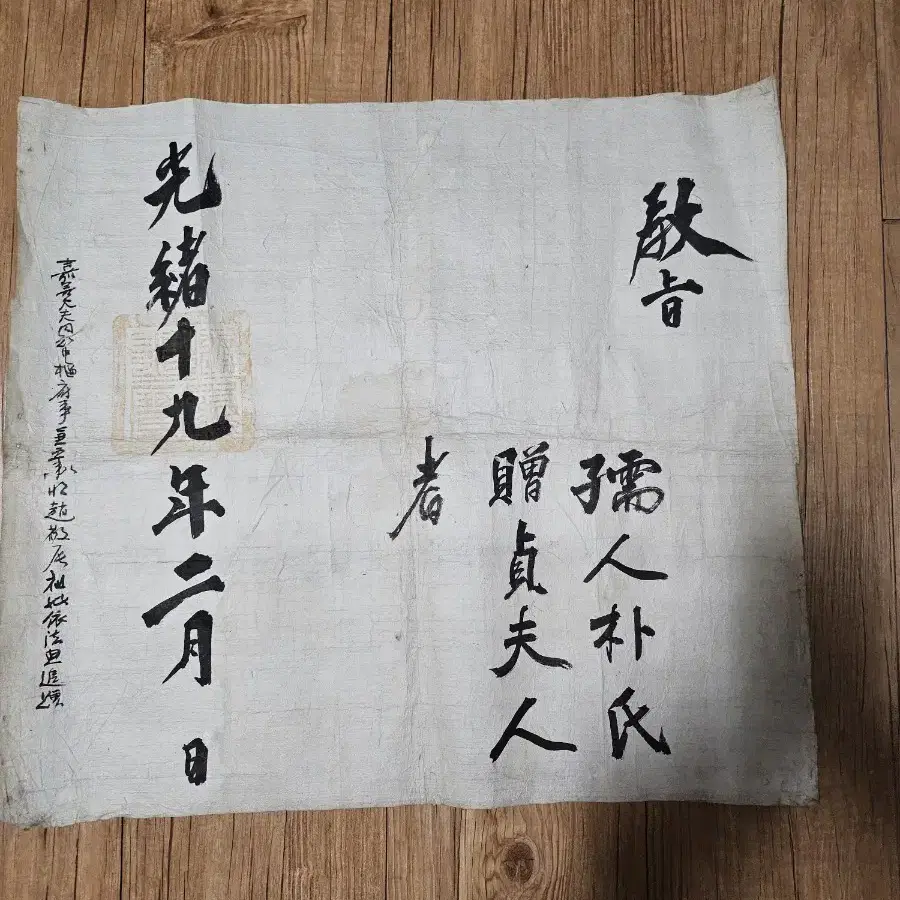 敎旨
孺人朴氏
贈貞夫人
者
光緒十九年二月 日
嘉善大夫同知中樞府事兼 將趙 祖妣依法典追贈